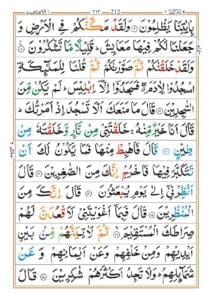 212
بِاٰيٰتِنَا يَظْلِمُوْنَ ۞ وَلَقَدْ مَكَّنّٰكُمْ فِى الْاَرْضِ وَ
جَعَلْنَا لَكُمْ فِيْهَا مَعَايِشَ ؕ قَلِيْلًا مَّا تَشْكُرُوْنَ ۞
وَلَقَدْ خَلَقْنٰكُمْ ثُمَّ صَوَّرْنٰكُمْ ثُمَّ قُلْنَا لِلْمَلٰٓئِكَةِ
اسْجُدُوْا لِاٰدَمَ ۖ فَسَجَدُوْٓا اِلَّاۤ اِبْلِيْسَ ؕ لَمْ يَكُنْ مِّنَ
السّٰجِدِيْنَ ۞ قَالَ مَا مَنَعَكَ اَلَّا تَسْجُدَ اِذْ اَمَرْتُكَ ؕ
قَالَ اَنَا خَيْرٌ مِّنْهُ ۚ خَلَقْتَنِيْ مِنْ نَّارٍ وَّخَلَقْتَهٗ مِنْ
طِيْنٍ ۞ قَالَ فَاهْبِطْ مِنْهَا فَمَا يَكُوْنُ لَكَ اَنْ
تَتَكَبَّرَ فِيْهَا فَاخْرُجْ اِنَّكَ مِنَ الصّٰغِرِيْنَ ۞ قَالَ
اَنْظِرْنِيْۤ اِلٰى يَوْمِ يُبْعَثُوْنَ ۞ قَالَ اِنَّكَ مِنَ
الْمُنْظَرِيْنَ ۞ قَالَ فَبِمَاۤ اَغْوَيْتَنِيْ لَاَقْعُدَنَّ لَهُمْ
صِرَاطَكَ الْمُسْتَقِيْمَ ۞ ثُمَّ لَاٰتِيَنَّهُمْ مِّنْۢ بَيْنِ
اَيْدِيْهِمْ وَمِنْ خَلْفِهِمْ وَعَنْ اَيْمَانِهِمْ وَعَنْ
شَمَآئِلِهِمْ ؕ وَلَا تَجِدُ اَكْثَرَهُمْ شٰكِرِيْنَ ۞ قَالَ